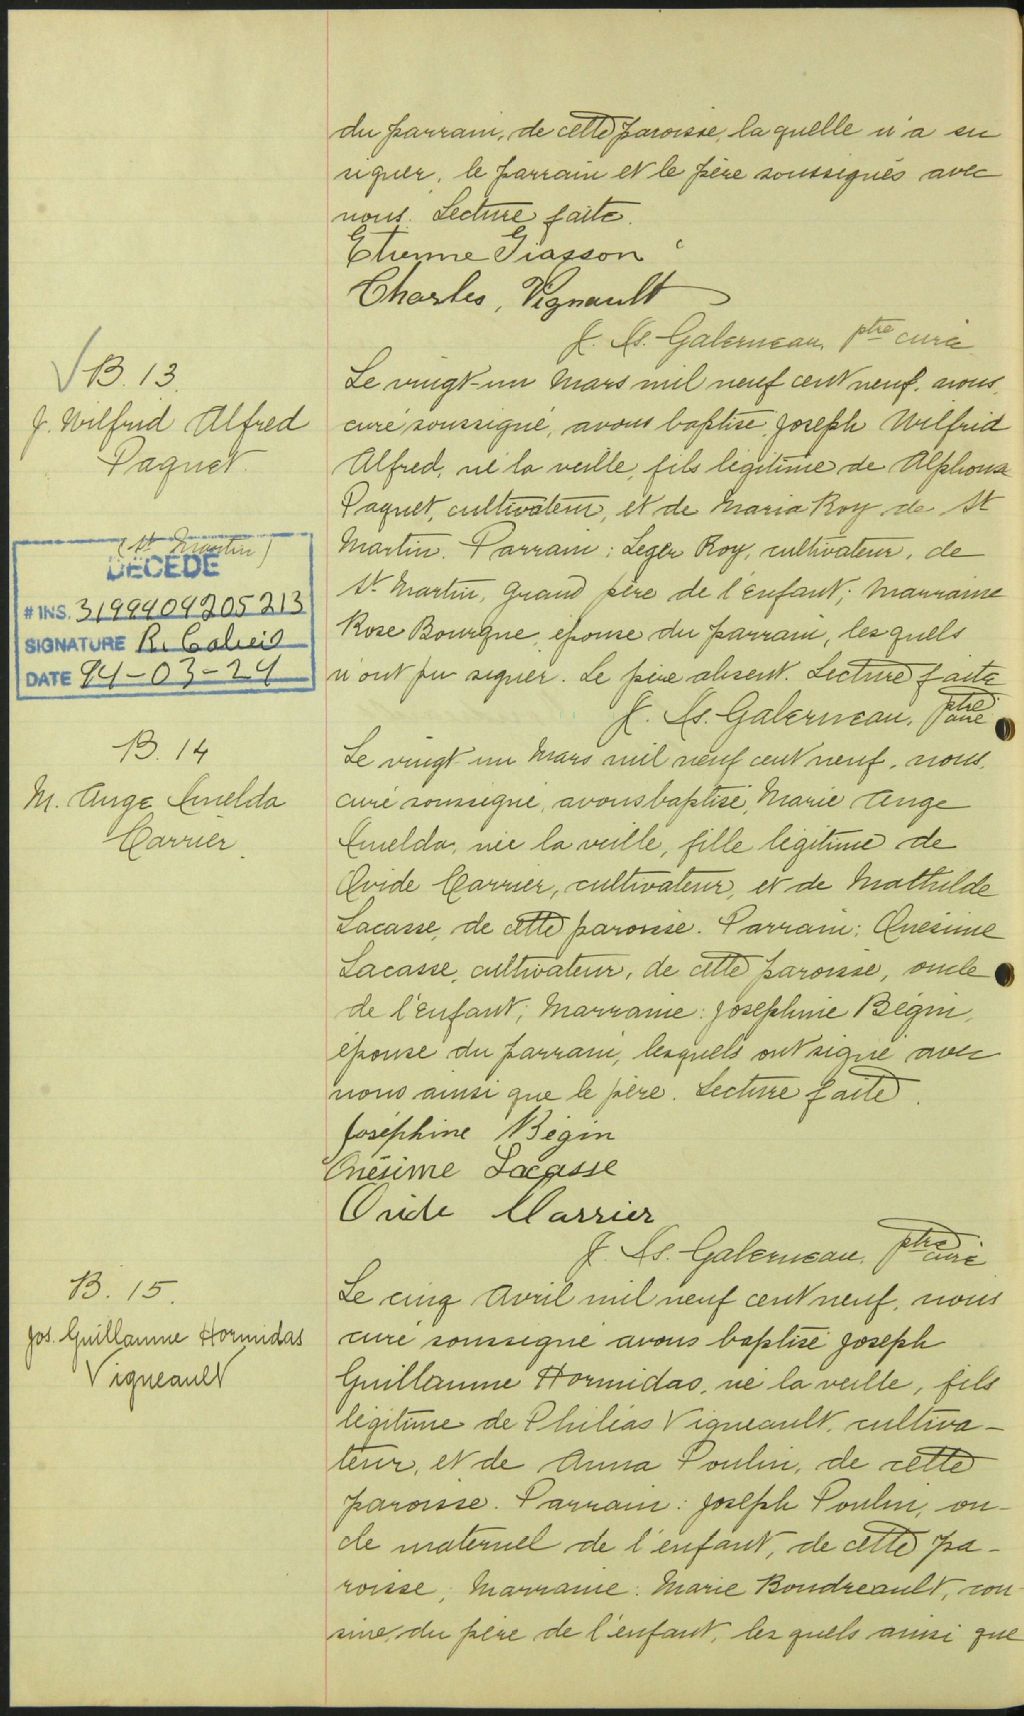 du parrain, de cette paroisse, laquelle n'a su
signer, le parrain et le père soussignés avec
nous. Lecture faite.
Etienne Giasson
Charles, Vignault
J. Ls. Galerneau, ptre curé
B. 13.
J. Wilfrid Alfred
Paquet.
(St Martin)
DÉCÉDÉ
# INS. 3199409205213
SIGNATURE R.
DATE 94-03-24
Le vingt-un Mars mil neuf cent neuf, nous,
curé soussigné, avons baptisé Joseph Wilfrid
Alfred, né la veille, fils légitime de Alphonse
Paquet, cultivateur, et de Maria Roy de St
Martin. Parrain: Leger Roy, cultivateur, de
St Martin, Grand père de l'enfant; Marraine
Rose Bourque, épouse du parrain, lesquels
n'ont pu signer. Le père absent. Lecture faite
J. Ls. Galerneau, ptre curé
B. 14
M. Ange Imelda
Carrier.
Le vingt un Mars mil neuf cent neuf, nous,
curé soussigné, avons baptisé, Marie Ange
Imelda, née la veille, fille légitime de
Ovide Carrier, cultivateur, et de Mathilde
Lacasse, de cette paroisse. Parrain: Onésime
Lacasse, cultivateur, de cette paroisse, oncle
de l'enfant; Marraine: Josephine Bégin,
épouse du parrain, lesquels ont signé avec
nous ainsi que le père. Lecture faite.
Joséphine Bégin
Onésime Lacasse
Ovide Carrier
J. Ls. Galerneau, ptre curé
B. 15.
Jos. Guillaume Hormidas
Vigneault
Le cinq Avril mil neuf cent neuf, nous
curé soussigné avons baptisé Joseph
Guillaume Hormidas, né la veille, fils
légitime de Philias Vigneault, cultiva-
teur, et de Anna Poulin, de cette
paroisse. Parrain: Joseph Poulin, on-
cle maternel de l'enfant, de cette pa-
roisse; Marraine: Marie Boudreault, cou-
sine du père de l'enfant, lesquels ainsi que